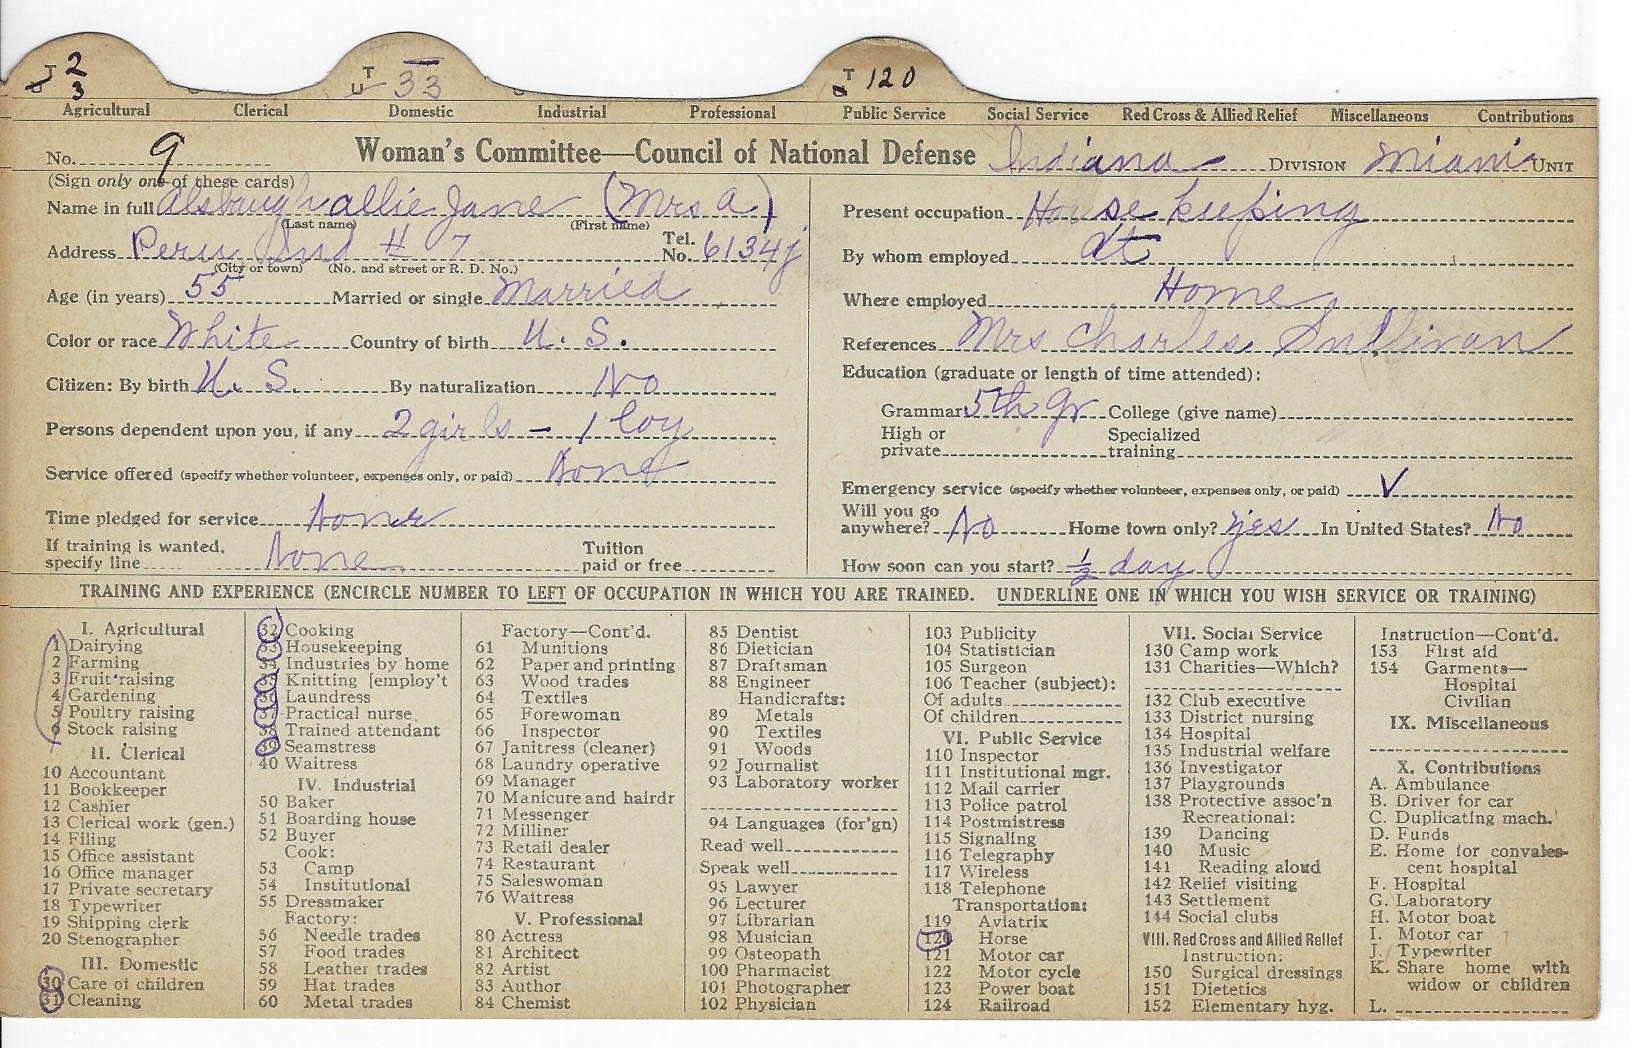 T 2 T 33 T 120
U 3 U
Agricultural Clerical Domestic Industrial Professional Public Service Social Service Red Cross & Allied Relief Miscellaneous Contributions
No. 9 Woman's Committee—Council of National Defense Indiana DIVISION Miami UNIT
(Sign only one of these cards)
Name in full Alsbaugh allie Jane (Mrs A)
(Last name) (First name)
Address Peru Ind # 7 Tel. No. 6134j
(City or town) (No. and street or R. D. No.)
Age (in years) 55 Married or single Married
Color or race White Country of birth U. S.
Citizen: By birth U. S. By naturalization No
Persons dependent upon you, if any 2 girls - 1 boy
Service offered (specify whether volunteer, expenses only, or paid) None
Time pledged for service None
If training is wanted, specify line None Tuition paid or free
Present occupation House keeping
By whom employed at
Where employed Home
References Mrs Charles Sullivan
Education (graduate or length of time attended):
Grammar 5th gr College (give name)
High or private Specialized training
Emergency service (specify whether volunteer, expenses only, or paid) V
Will you go anywhere? No Home town only? yes In United States? No
How soon can you start? ½ day
TRAINING AND EXPERIENCE (ENCIRCLE NUMBER TO LEFT OF OCCUPATION IN WHICH YOU ARE TRAINED. UNDERLINE ONE IN WHICH YOU WISH SERVICE OR TRAINING)
I. Agricultural
1 Dairying
2 Farming
3 Fruit raising
4 Gardening
5 Poultry raising
6 Stock raising
II. Clerical
10 Accountant
11 Bookkeeper
12 Cashier
13 Clerical work (gen.)
14 Filing
15 Office assistant
16 Office manager
17 Private secretary
18 Typewriter
19 Shipping clerk
20 Stenographer
III. Domestic
30 Care of children
31 Cleaning
32 Cooking
33 Housekeeping
34 Industries by home
35 Knitting [employ't
36 Laundress
37 Practical nurse
38 Trained attendant
39 Seamstress
40 Waitress
IV. Industrial
50 Baker
51 Boarding house
52 Buyer
Cook:
53 Camp
54 Institutional
55 Dressmaker
Factory:
56 Needle trades
57 Food trades
58 Leather trades
59 Hat trades
60 Metal trades
Factory—Cont'd.
61 Munitions
62 Paper and printing
63 Wood trades
64 Textiles
65 Forewoman
66 Inspector
67 Janitress (cleaner)
68 Laundry operative
69 Manager
70 Manicure and hairdr
71 Messenger
72 Milliner
73 Retail dealer
74 Restaurant
75 Saleswoman
76 Waitress
V. Professional
80 Actress
81 Architect
82 Artist
83 Author
84 Chemist
85 Dentist
86 Dietician
87 Draftsman
88 Engineer
Handicrafts:
89 Metals
90 Textiles
91 Woods
92 Journalist
93 Laboratory worker
94 Languages (for'gn)
Read well
Speak well
95 Lawyer
96 Lecturer
97 Librarian
98 Musician
99 Osteopath
100 Pharmacist
101 Photographer
102 Physician
103 Publicity
104 Statistician
105 Surgeon
106 Teacher (subject):
Of adults
Of children
VI. Public Service
110 Inspector
111 Institutional mgr.
112 Mail carrier
113 Police patrol
114 Postmistress
115 Signaling
116 Telegraphy
117 Wireless
118 Telephone
Transportation:
119 Aviatrix
120 Horse
121 Motor car
122 Motor cycle
123 Power boat
124 Railroad
VII. Social Service
130 Camp work
131 Charities—Which?
132 Club executive
133 District nursing
134 Hospital
135 Industrial welfare
136 Investigator
137 Playgrounds
138 Protective assoc'n
Recreational:
139 Dancing
140 Music
141 Reading aloud
142 Relief visiting
143 Settlement
144 Social clubs
VIII. Red Cross and Allied Relief
Instruction:
150 Surgical dressings
151 Dietetics
152 Elementary hyg.
Instruction—Cont'd.
153 First aid
154 Garments—
Hospital
Civilian
IX. Miscellaneous
X. Contributions
A. Ambulance
B. Driver for car
C. Duplicating mach.
D. Funds
E. Home for convales-
cent hospital
F. Hospital
G. Laboratory
H. Motor boat
I. Motor car
J. Typewriter
K. Share home with
widow or children
L.